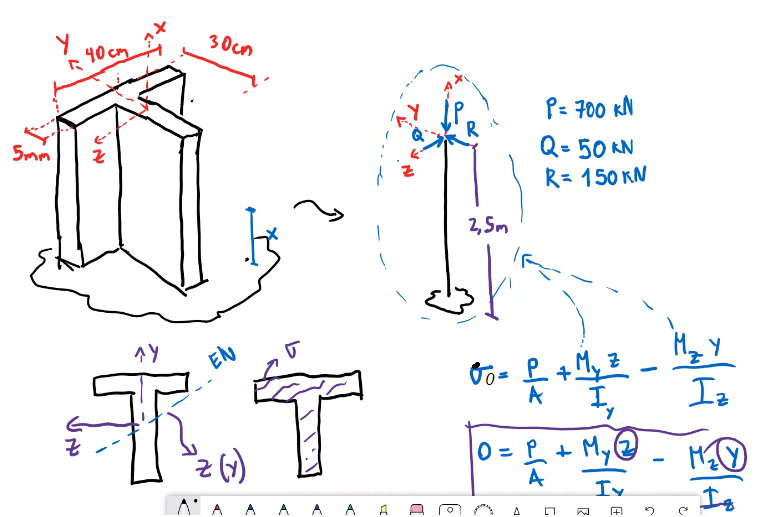 Y 40cm X 30cm
5mm Z
X
X
P
Y R
Q
Z
2,5m
P = 700 kN
Q = 50 kN
R = 150 kN
Y EN
Z
Z(Y)
σ
σ₀ = P/A + M_y z/I_y − M_z y/I_z
0 = P/A + M_y z/I_y − M_z y/I_z